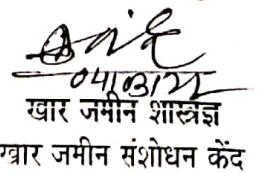 04/03/22
खार जमीन शास्त्रज्ञ
खार जमीन संशोधन केंद